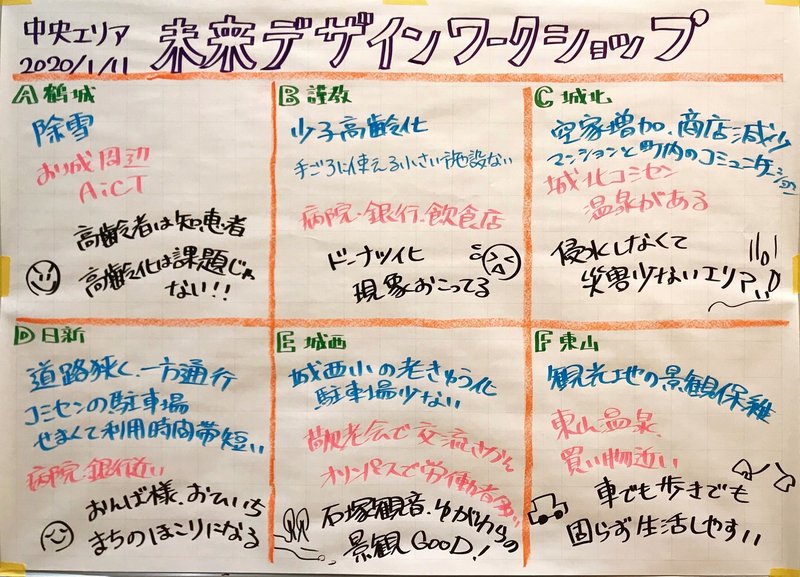 中央エリア
2020/1/11
未来デザインワークショップ
A 鶴城
除雪
お城周辺
AiCT
高齢者は知恵者
高齢化は課題じゃ
ない!!
B 謹教
少子高齢化
手ごろに使える小さい施設ない
病院・銀行・飲食店
ドーナツ化
現象おこってる
C 城北
空家増加、商店減少
マンションと町内のコミュニケーション
城北コミセン
温泉がある
侵水しなくて
災害少ないエリア
D 日新
道路狭く、一方通行
コミセンの駐車場
せまくて利用時間帯短い
病院・銀行近い
おんば様、おひいち
まちのほこりになる
E 城西
城西小の老きゅう化
駐車場少ない
敬老会で交流さかん
オリンパスで労働者多い
石塚観音、ゆがわらの
景観GOOD!
F 東山
観光地の景観保稚
東山温泉、
買い物近い
車でも歩きでも
固らず生活しやすい